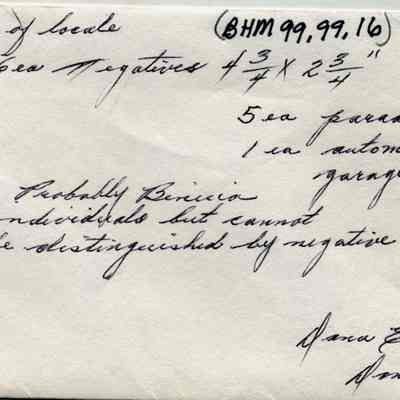 of locale (BHM 99.99.16)
6ea Negatives 4 3/4 x 2 3/4"
5 ea para
1 ea autom
garag
Probably Binicia
individuals but cannot
be distinguished by negative
Dana E
Don